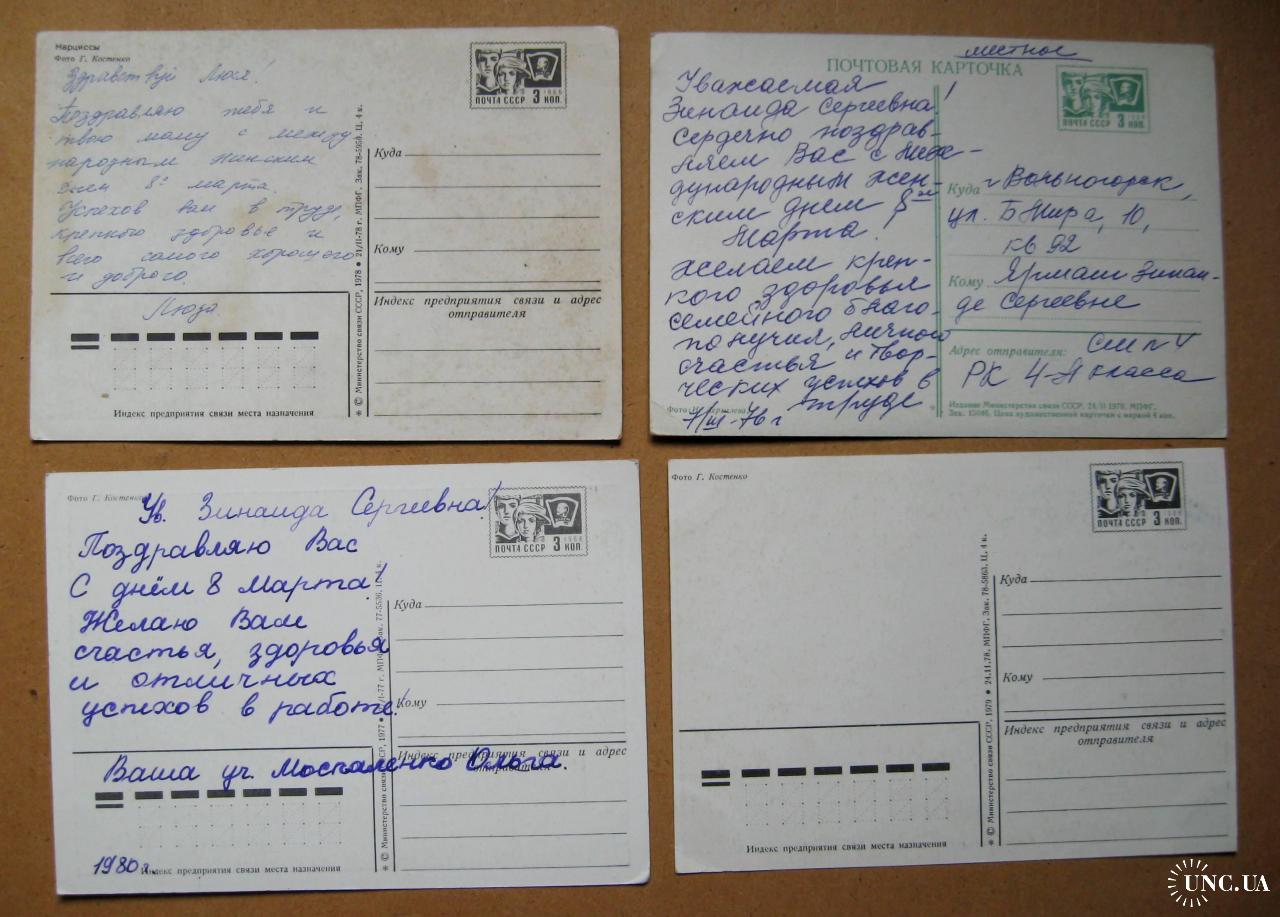 Нарциссы
Фото Г. Костенко
Здравствуй Люся!
Поздравляю тебя и
твою маму с между
народным женским
днем 8ᵉ марта.
Успехов вам в труде,
крепкого здоровье и
всего самого хорошего
и доброго.
Люда
ПОЧТА СССР 3 КОП.
1966
Куда
Кому
Индекс предприятия связи и адрес
отправителя
Индекс предприятия связи места назначения
* © Министерство связи СССР, 1978 • 21/II-78 г. МПФГ. Зак. 78-5950. Ц. 4 к.
местное
ПОЧТОВАЯ КАРТОЧКА
ПОЧТА СССР 3 КОП.
Уважаемая
Зинаида Сергеевна!
Сердечно поздрав-
ляем Вас с Меж-
дународным жен-
ским днем 8ᵐ
Марта!
Желаем креп-
кого здоровья
семейного благо-
получия, личного
счастья и твор-
ческих успехов в
труде
1/III-76 г
Фото
Куда г. Вольногорск,
ул. Б Мира, 10,
кв 92
Кому Ярмаш Зинаи-
де Сергеевне
Адрес отправителя:
РК 4-А класса
Издание Министерства связи СССР. 24/II 1970. МПФГ.
Зак. 15046. Цена художественной карточки с маркой 4 коп.
Фото Г. Костенко
Ув. Зинаида Сергеевна!
Поздравляю Вас
С днём 8 Марта!
Желаю Вам
счастья, здоровья
и отличных
успехов в работе!
Ваша уч. Москаленко Ольга.
1980 г.
ПОЧТА СССР 3 КОП.
1966
Куда
Кому
Индекс предприятия связи и адрес
отправителя
Индекс предприятия связи места назначения
* © Министерство связи СССР, 1977 • МПФГ. 77-5536. Ц. 4 к.
Фото Г. Костенко
ПОЧТА СССР 3 КОП.
1966
Куда
Кому
Индекс предприятия связи и адрес
отправителя
Индекс предприятия связи места назначения
* © Министерство связи СССР, 1979 • 24.11.78. МПФГ. Зак. 78-5863. Ц. 4 к.
UNC.UA